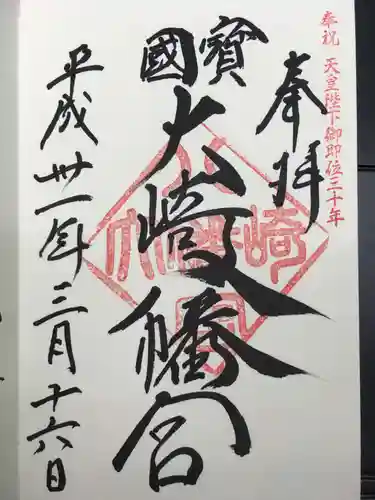 奉祝 天皇陛下御即位三十年
奉拝
國寳
大崎八幡宮
平成卅一年三月十六日